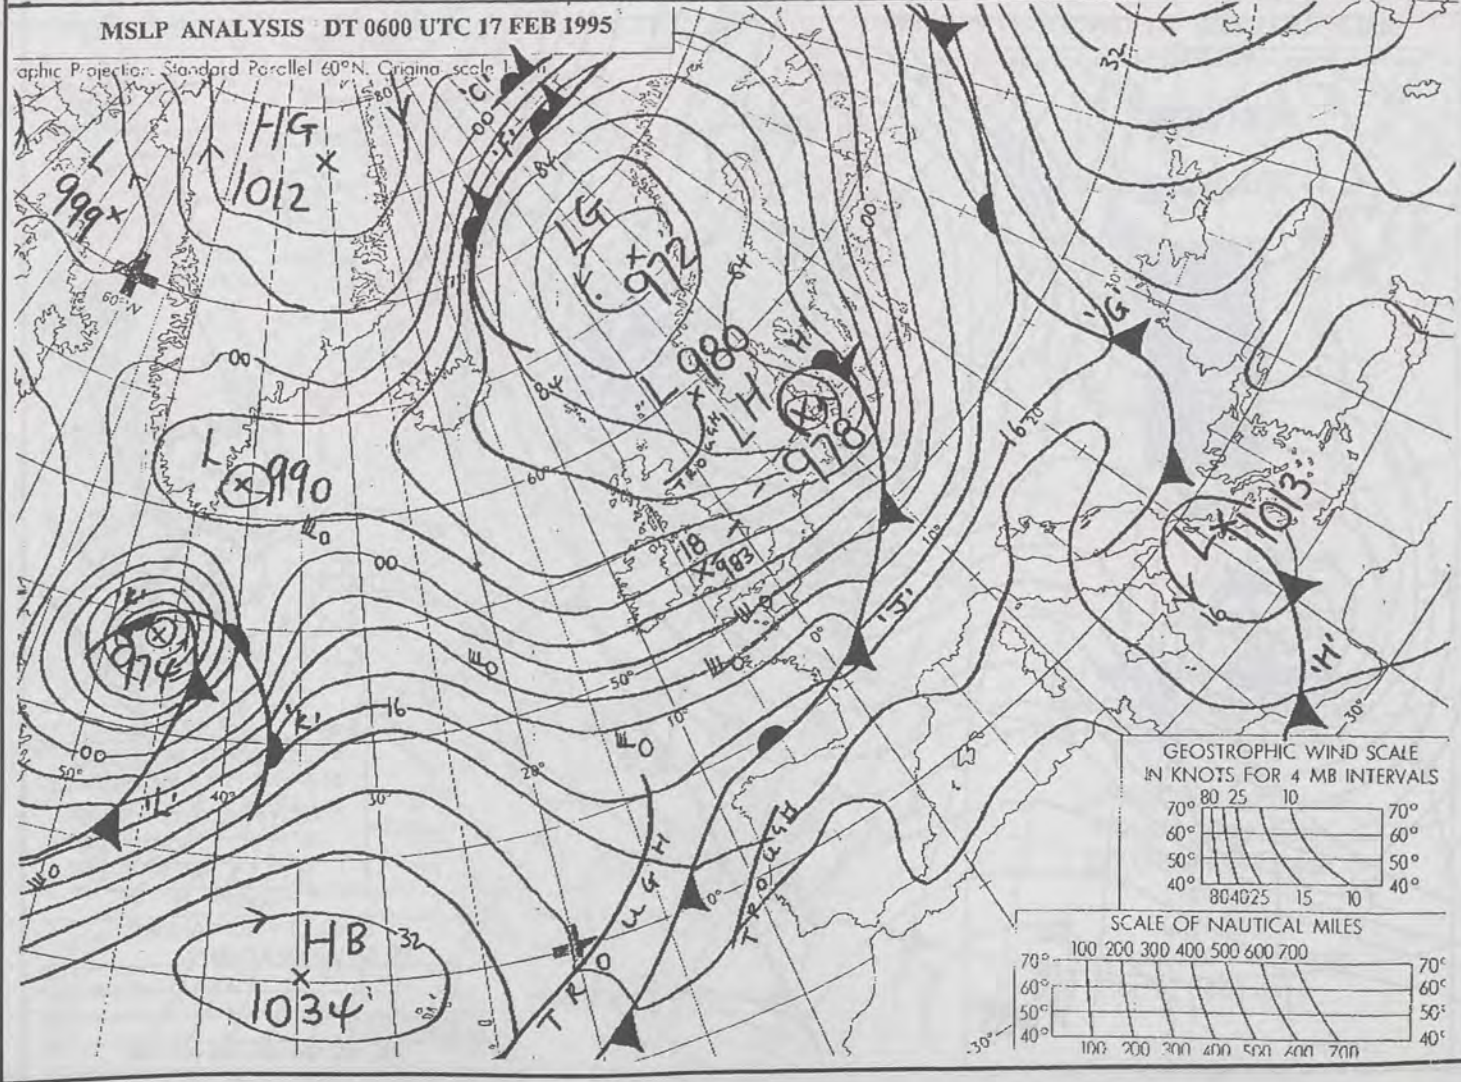 MSLP ANALYSIS DT 0600 UTC 17 FEB 1995
aphic Projection. Standard Parallel 60°N. Origina scale 1
HG
1012
L
999
60°N
80
'C'
00
'F'
84
LG
972
84
00
32
'G'
L 980
'H'
LH
978
TROUGH
84
00
L
990
60°
00
18
983
16
20
10°
'J'
L
1013
16
'H'
30°
'K'
974
'K'
16
50°
10°
0°
00
50°
40°
'L'
30°
20°
TROUGH
TROUGH
0°
HB
32
1034
GEOSTROPHIC WIND SCALE
IN KNOTS FOR 4 MB INTERVALS
80 25 10
70° 70°
60° 60°
50° 50°
40° 40°
80 40 25 15 10
SCALE OF NAUTICAL MILES
100 200 300 400 500 600 700
70° 70°
60° 60°
50° 50°
40° 40°
100 200 300 400 500 600 700
30°